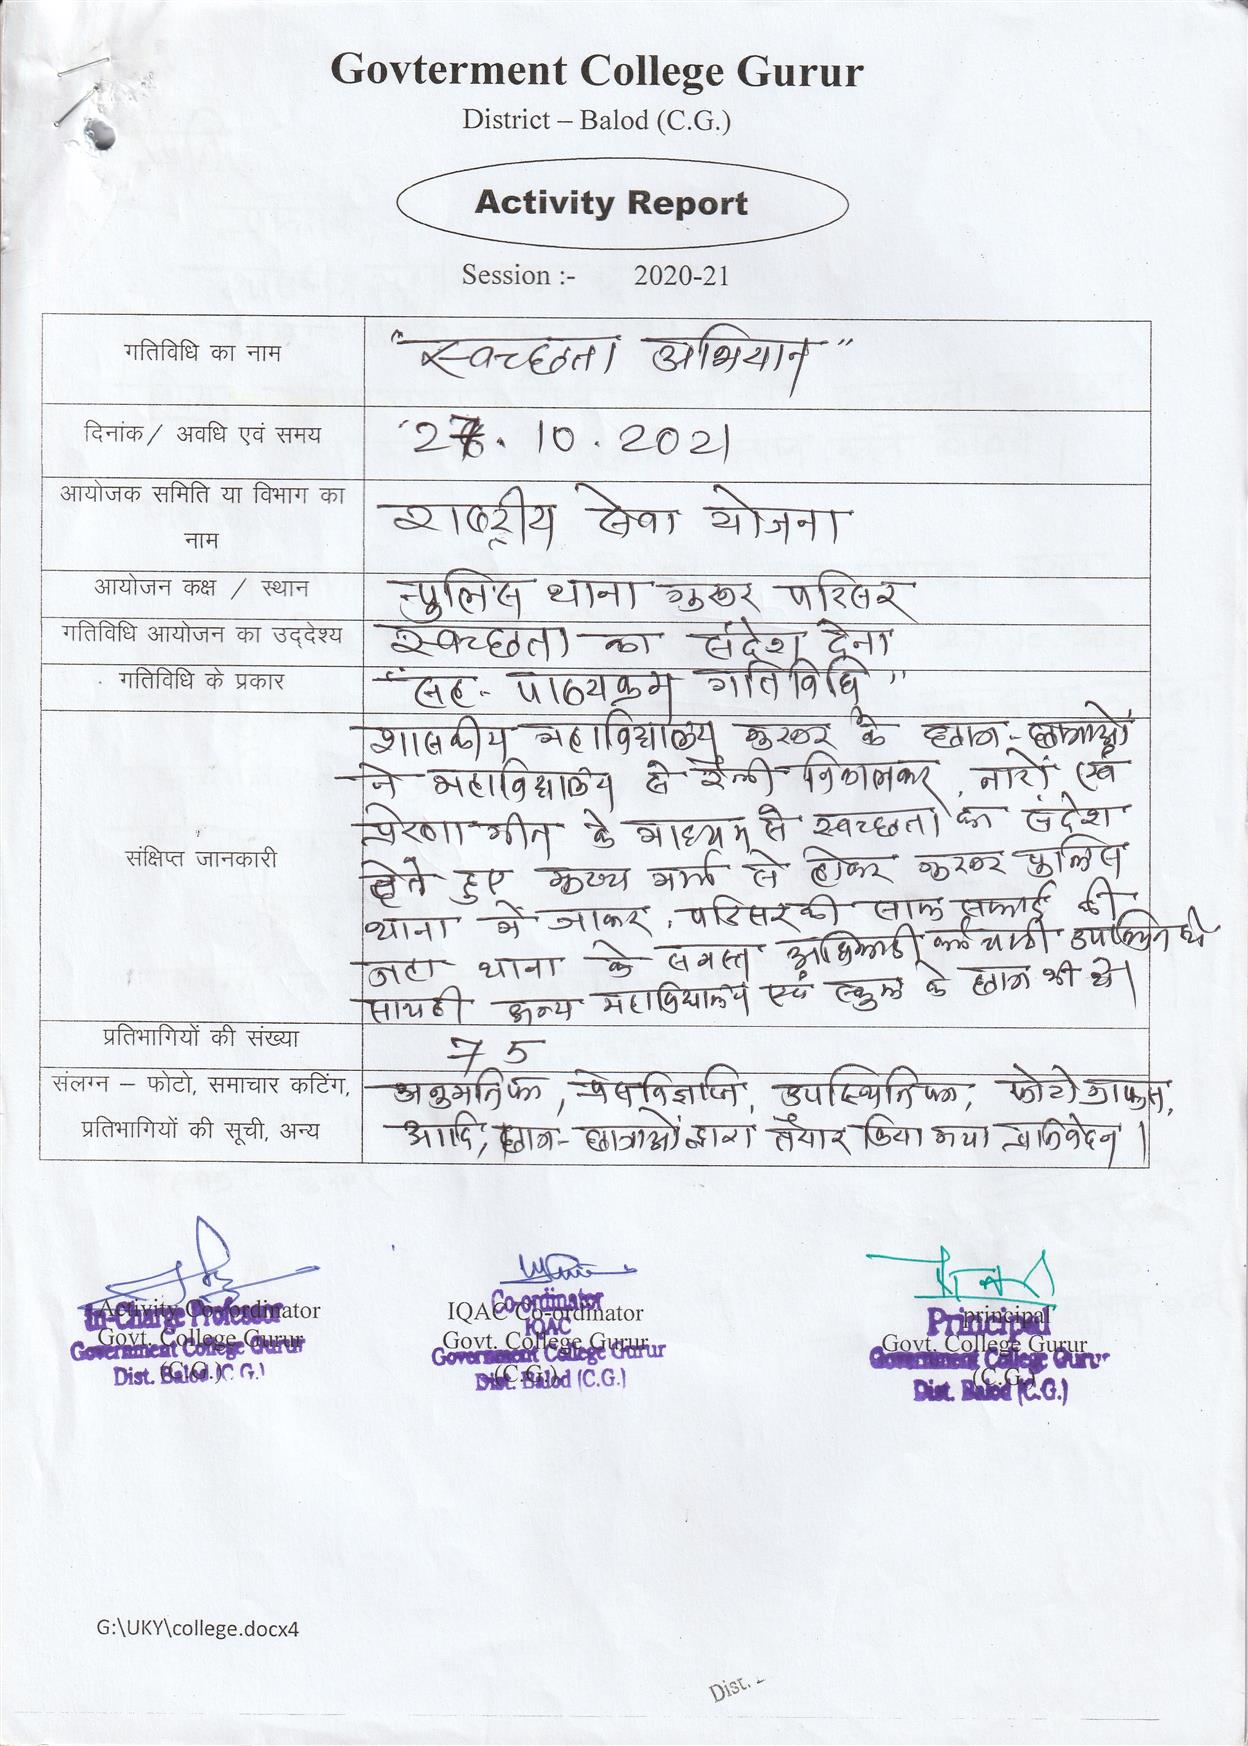 Govterment College Gurur
District – Balod (C.G.)
Activity Report
Session :- 2020-21
गतिविधि का नाम
"स्वच्छता अभियान"
दिनांक/ अवधि एवं समय
.10.2021
आयोजक समिति या विभाग का
नाम
राष्ट्रीय सेवा योजना
आयोजन कक्ष / स्थान
पुलिस थाना गुरूर परिसर
गतिविधि आयोजन का उद्देश्य
स्वच्छता का संदेश देना
गतिविधि के प्रकार
"सह- पाठ्यक्रम गतिविधि"
संक्षिप्त जानकारी
शासकीय महाविद्यालय गुरूर के छात्र-छात्राओं
ने महाविद्यालय से रैली निकालकर, नारों एवं
प्रेरणा गीत के माध्यम से स्वच्छता का संदेश
देते हुए मुख्य मार्ग से होकर गुरूर पुलिस
थाना में जाकर, परिसर की साफ सफाई की
जहा थाना के समस्त अधिकारी कर्मचारी उपस्थित थे
साथही अन्य महाविद्यालय एवं स्कुल के छात्र भी थे।
प्रतिभागियों की संख्या
75
संलग्न – फोटो, समाचार कटिंग,
प्रतिभागियों की सूची, अन्य
अनुमतिपत्र, प्रेसविज्ञप्ति, उपस्थितिपत्र, फोटोग्राफ्स,
आदि, छात्र-छात्राओं द्वारा तैयार किया गया प्रतिवेदन।
Activity Co-ordinator
Govt. College Gurur
(C.G.)
In-Charge Professor
Government College Gurur
Dist. Balod (C.G.)
IQAC Co-ordinator
Govt. College Gurur
(C.G.)
Co-ordinator
IQAC
Government College Gurur
Dist. Balod (C.G.)
principal
Govt. College Gurur
(C.G.)
Principal
Government College Gurur
Dist. Balod (C.G.)
G:\UKY\college.docx4
Dist.